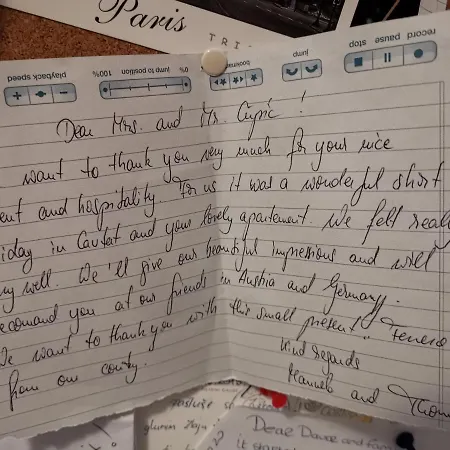 Paris
TRI
record pause stop
jump
bookmark
0% jump to position 100%
playback speed
Dear Mrs. and Mr. Cupić!
want to thank you very much for your nice
ent and hospitality. For us it was a wonderful short
iday in Cavtat and your lovely apartement. We felt reall
ny well. We'll give our beautiful impressions and will
ecomand you at our friends in Austria and Germany.
We want to thank you with this small present
from our contry.
Kind regards
Manuela and Thom
Dear Davor and
it